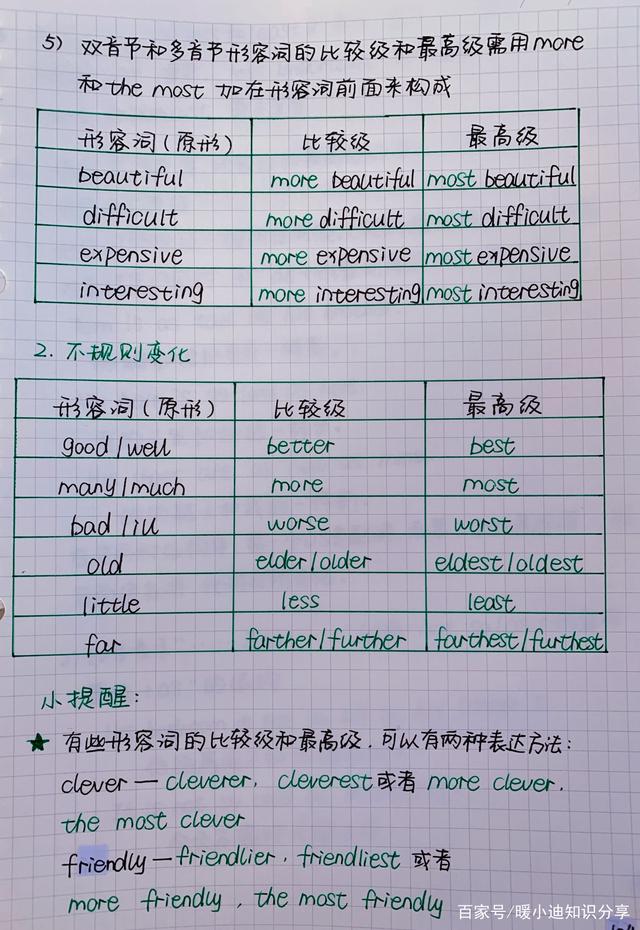 5) 双音节和多音节形容词的比较级和最高级需用more
和the most 加在形容词前面来构成
形容词(原形) 比较级 最高级
beautiful more beautiful most beautiful
difficult more difficult most difficult
expensive more expensive most expensive
interesting more interesting most interesting
2. 不规则变化
形容词(原形) 比较级 最高级
good/well better best
many/much more most
bad/ill worse worst
old elder/older eldest/oldest
little less least
far farther/further farthest/furthest
小提醒:
★ 有些形容词的比较级和最高级,可以有两种表达方法:
clever — cleverer, cleverest或者 more clever,
the most clever
friendly — friendlier, friendliest 或者
more friendly, the most friendly
百家号/暖小迪知识分享